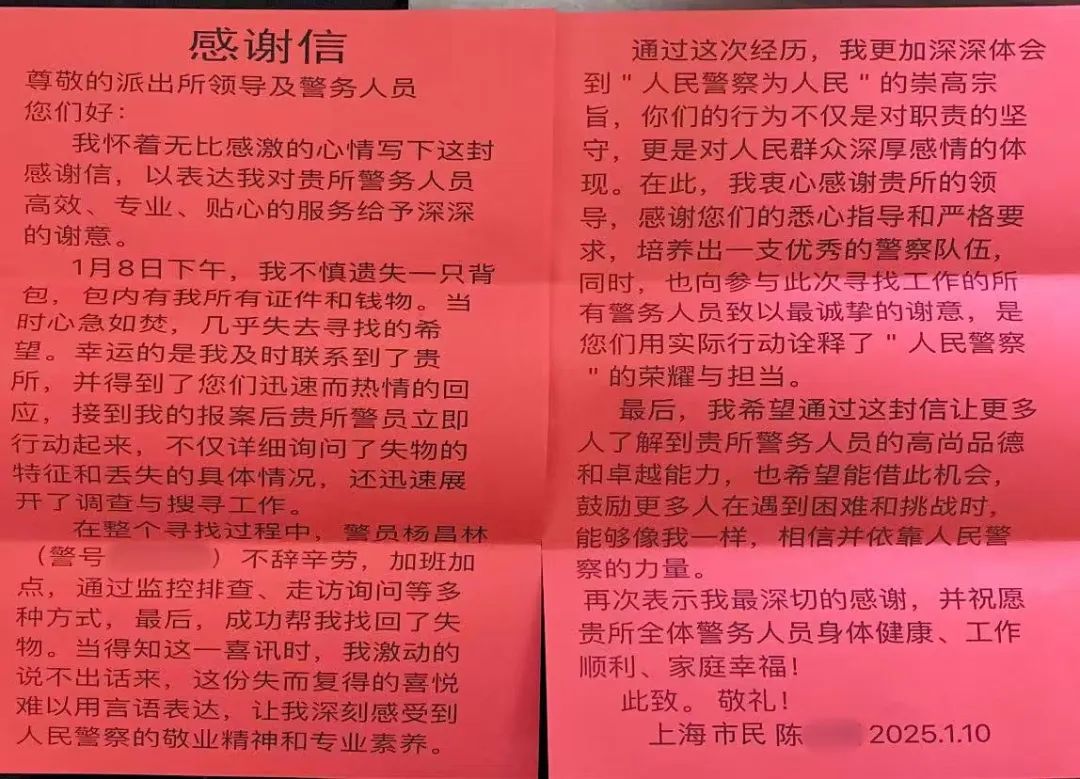 感谢信
尊敬的派出所领导及警务人员
您们好：
我怀着无比感激的心情写下这封
感谢信，以表达我对贵所警务人员
高效、专业、贴心的服务给予深深
的谢意。
1月8日下午，我不慎遗失一只背
包，包内有我所有证件和钱物。当
时心急如焚，几乎失去寻找的希
望。幸运的是我及时联系到了贵
所，并得到了您们迅速而热情的回
应，接到我的报案后贵所警员立即
行动起来，不仅详细询问了失物的
特征和丢失的具体情况，还迅速展
开了调查与搜寻工作。
在整个寻找过程中，警员杨昌林
（警号 ）不辞辛劳，加班加
点，通过监控排查、走访询问等多
种方式，最后，成功帮我找回了失
物。当得知这一喜讯时，我激动的
说不出话来，这份失而复得的喜悦
难以用言语表达，让我深刻感受到
人民警察的敬业精神和专业素养。
通过这次经历，我更加深深体会
到"人民警察为人民"的崇高宗
旨，你们的行为不仅是对职责的坚
守，更是对人民群众深厚感情的体
现。在此，我衷心感谢贵所的领
导，感谢您们的悉心指导和严格要
求，培养出一支优秀的警察队伍，
同时，也向参与此次寻找工作的所
有警务人员致以最诚挚的谢意，是
您们用实际行动诠释了"人民警察
"的荣耀与担当。
最后，我希望通过这封信让更多
人了解到贵所警务人员的高尚品德
和卓越能力，也希望能借此机会，
鼓励更多人在遇到困难和挑战时，
能够像我一样，相信并依靠人民警
察的力量。
再次表示我最深切的感谢，并祝愿
贵所全体警务人员身体健康、工作
顺利、家庭幸福！
此致。敬礼！
上海市民 陈 2025.1.10